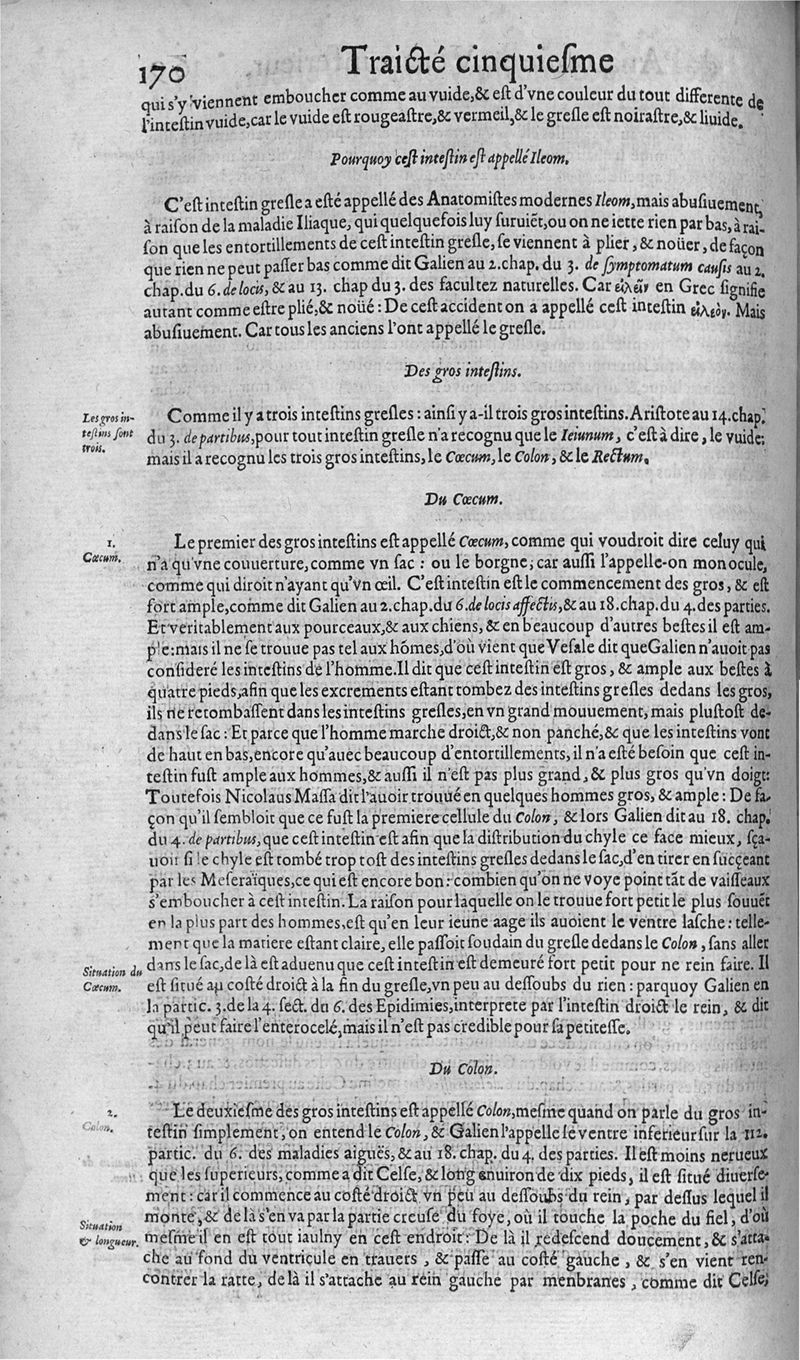 170
Traicté cinquiesme
qui s'y viennent emboucher comme au vuide,& est d'vne couleur du tout differente de
l'intestin vuide,car le vuide est rougeastre,& vermeil,& le gresle est noirastre,& liuide.
Pourquoy cest intestin est appellé Ileom.
C'est intestin gresle a esté appellé des Anatomistes modernes Ileom,mais abusiuement
à raison de la maladie Iliaque, qui quelquefois luy suruiẽt,ou on ne iette rien par bas, à rai-
son que les entortillements de cest intestin gresle, se viennent à plier, & noüer, de façon
que rien ne peut passer bas comme dit Galien au 2.chap. du 3. de symptomatum causis au 2.
chap.du 6. de locis, & au 13. chap du 3. des facultez naturelles. Car εἰλεῖν en Grec signifie
autant comme estre plié,& noüé : De cest accident on a appellé cest intestin εἰλεόν. Mais
abusiuement. Car tous les anciens l'ont appellé le gresle.
Des gros intestins.
Les gros in-
testins sont
trois.
Comme il y a trois intestins gresles : ainsi y a-il trois gros intestins. Aristote au 14.chap.
du 3. de partibus,pour tout intestin gresle n'a recognu que le Ieiunum, c'est à dire, le vuide:
mais il a recognu les trois gros intestins, le Cœcum, le Colon, & le Rectum.
Du Cœcum.
1.
Cœcum.
Le premier des gros intestins est appellé Cœcum, comme qui voudroit dire celuy qui
n'a qu'vne couuerture, comme vn sac : ou le borgne; car aussi l'appelle-on monocule,
comme qui diroit n'ayant qu'vn œil. C'est intestin est le commencement des gros, & est
fort ample,comme dit Galien au 2.chap.du 6.de locis affectis,& au 18.chap.du 4.des parties.
Et veritablement aux pourceaux,& aux chiens, & en beaucoup d'autres bestes il est am-
ple:mais il ne se trouue pas tel aux hõmes,d'où vient que Vesale dit que Galien n'auoit pas
consideré les intestins de l'homme.Il dit que cest intestin est gros, & ample aux bestes à
quatre pieds,afin que les excrements estant tombez des intestins gresles dedans les gros,
ils ne retombassent dans les intestins gresles,en vn grand mouuement, mais plustost de-
dans le sac : Et parce que l'homme marche droict,& non panché,& que les intestins vont
de haut en bas,encore qu'auec beaucoup d'entortillements,il n'a esté besoin que cest in-
testin fust ample aux hommes,& aussi il n'est pas plus grand, & plus gros qu'vn doigt:
Toutefois Nicolaus Massa dit l'auoir trouué en quelques hommes gros, & ample : De fa-
çon qu'il sembloit que ce fust la premiere cellule du Colon, & lors Galien dit au 18. chap.
du 4. de partibus, que cest intestin est afin que la distribution du chyle ce face mieux, sça-
uoir si le chyle est tombé trop tost des intestins gresles dedans le sac,d'en tirer en sucçeant
par les Meseraïques,ce qui est encore bon: combien qu'on ne voye point tãt de vaisseaux
s'emboucher à cest intestin. La raison pour laquelle on le trouue fort petit le plus souuẽt
en la plus part des hommes,est qu'en leur ieune aage ils auoient le ventre lasche : telle-
ment que la matiere estant claire, elle passoit soudain du gresle dedans le Colon, sans aller
Situation du
Cœcum.
dans le sac,de là est aduenu que cest intestin est demeuré fort petit pour ne rein faire. Il
est situé au costé droict à la fin du gresle,vn peu au dessoubs du rien : parquoy Galien en
la partic. 3.de la 4. sect. du 6. des Epidimies,interprete par l'intestin droict le rein, & dit
qu'il peut faire l'enterocelé,mais il n'est pas credible pour sa petitesse.
Du Colon.
2.
Colon.
Le deuxiesme des gros intestins est appellé Colon,mesme quand on parle du gros in-
testin simplement, on entend le Colon, & Galien l'appelle le ventre inferieur sur la 112.
partic. du 6. des maladies aiguës, & au 18. chap. du 4. des parties. Il est moins nerueux
que les superieurs, comme a dit Celse, & long enuiron de dix pieds, il est situé diuerse-
ment : car il commence au costé droict vn peu au dessoubs du rein, par dessus lequel il
Situation
& longueur.
monte,& de là s'en va par la partie creuse du foye, où il touche la poche du fiel, d'où
mesme il en est tout iaulny en cest endroit: De là il redescend doucement, & s'atta-
che au fond du ventricule en trauers, & passe au costé gauche, & s'en vient ren-
contrer la ratte, de là il s'attache au rein gauche par menbranes, comme dit Celse;